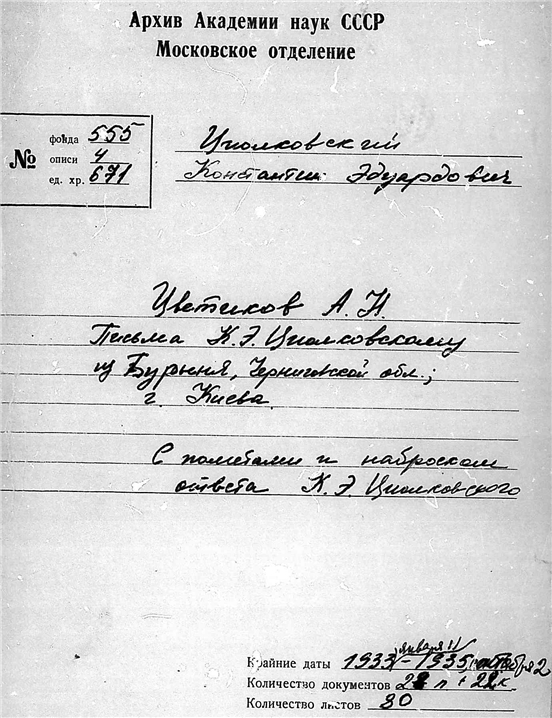 Архив Академии наук СССР
Московское отделение
№
фонда 555
описи 4
ед. хр. 671
Циолковский
Константин Эдуардович
Цветиков А. Н.
Письма К. Э. Циолковскому
из Бурыня, Черниговской обл.;
г. Киева
С пометами и наброском
ответа К. Э. Циолковского
Крайние даты 1933 января 11 – 1935 октября 2
Количество документов п +
Количество листов 80